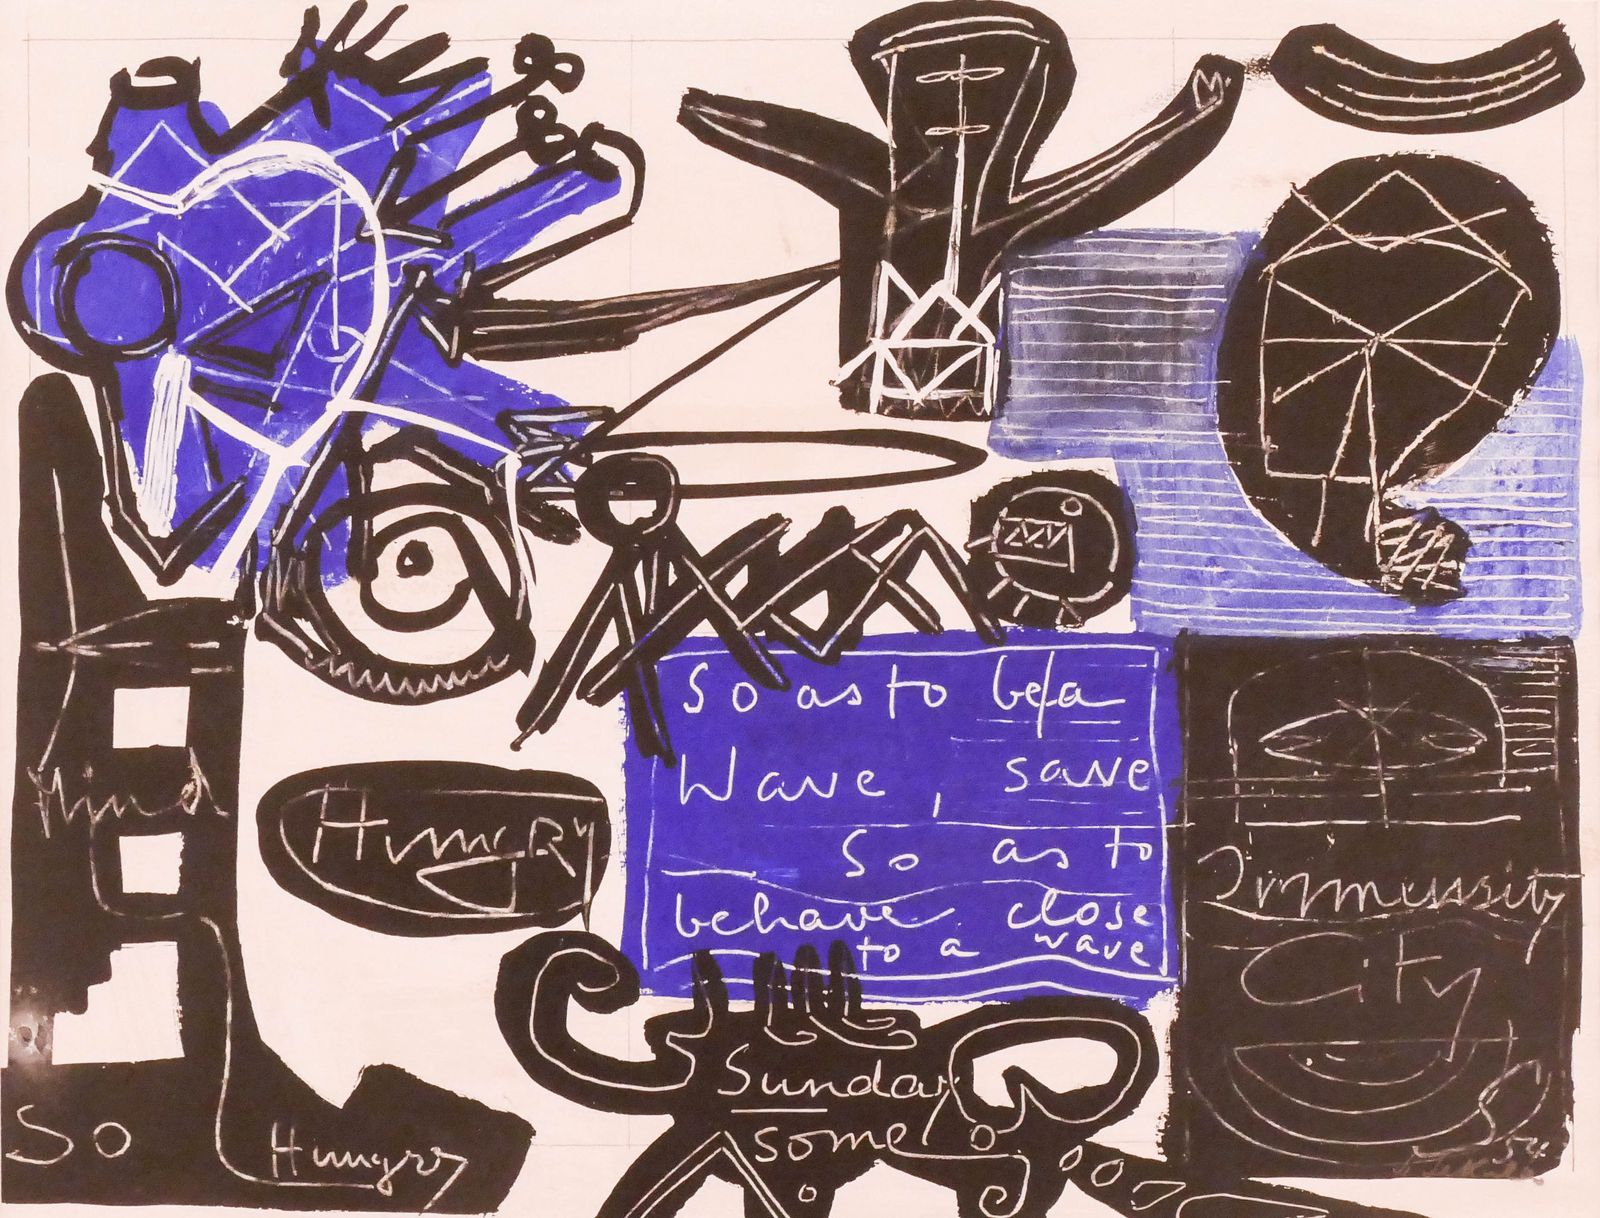 So as to be/a
Wave, save
So as to
behave close
to a wave
Hungry
City
Sunday
some
So
Hungry